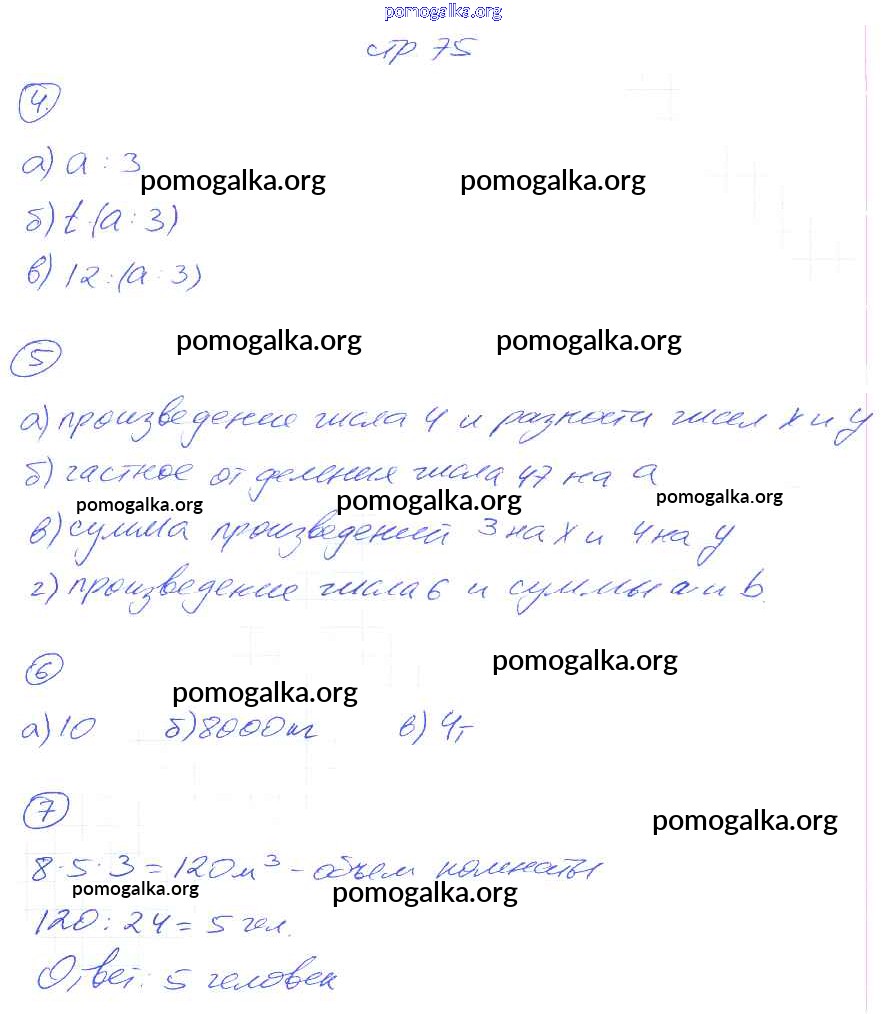 pomogalka.org
стр 75
4.
а) a : 3
pomogalka.org pomogalka.org
б) t·(a : 3)
в) 12:(a : 3)
pomogalka.org pomogalka.org
5
а) произведение числа 4 и разности чисел x и y
б) частное от деления числа 47 на a
pomogalka.org pomogalka.org pomogalka.org
в) сумма произведений 3 на x и 4 на y
г) произведение числа 6 и суммы a и b.
6
pomogalka.org
pomogalka.org
а) 10 б) 8000 кг в) 4т
7
pomogalka.org
8·5·3=120 м³ - объем комнаты
pomogalka.org pomogalka.org
120:24=5 чел.
Ответ: 5 человек